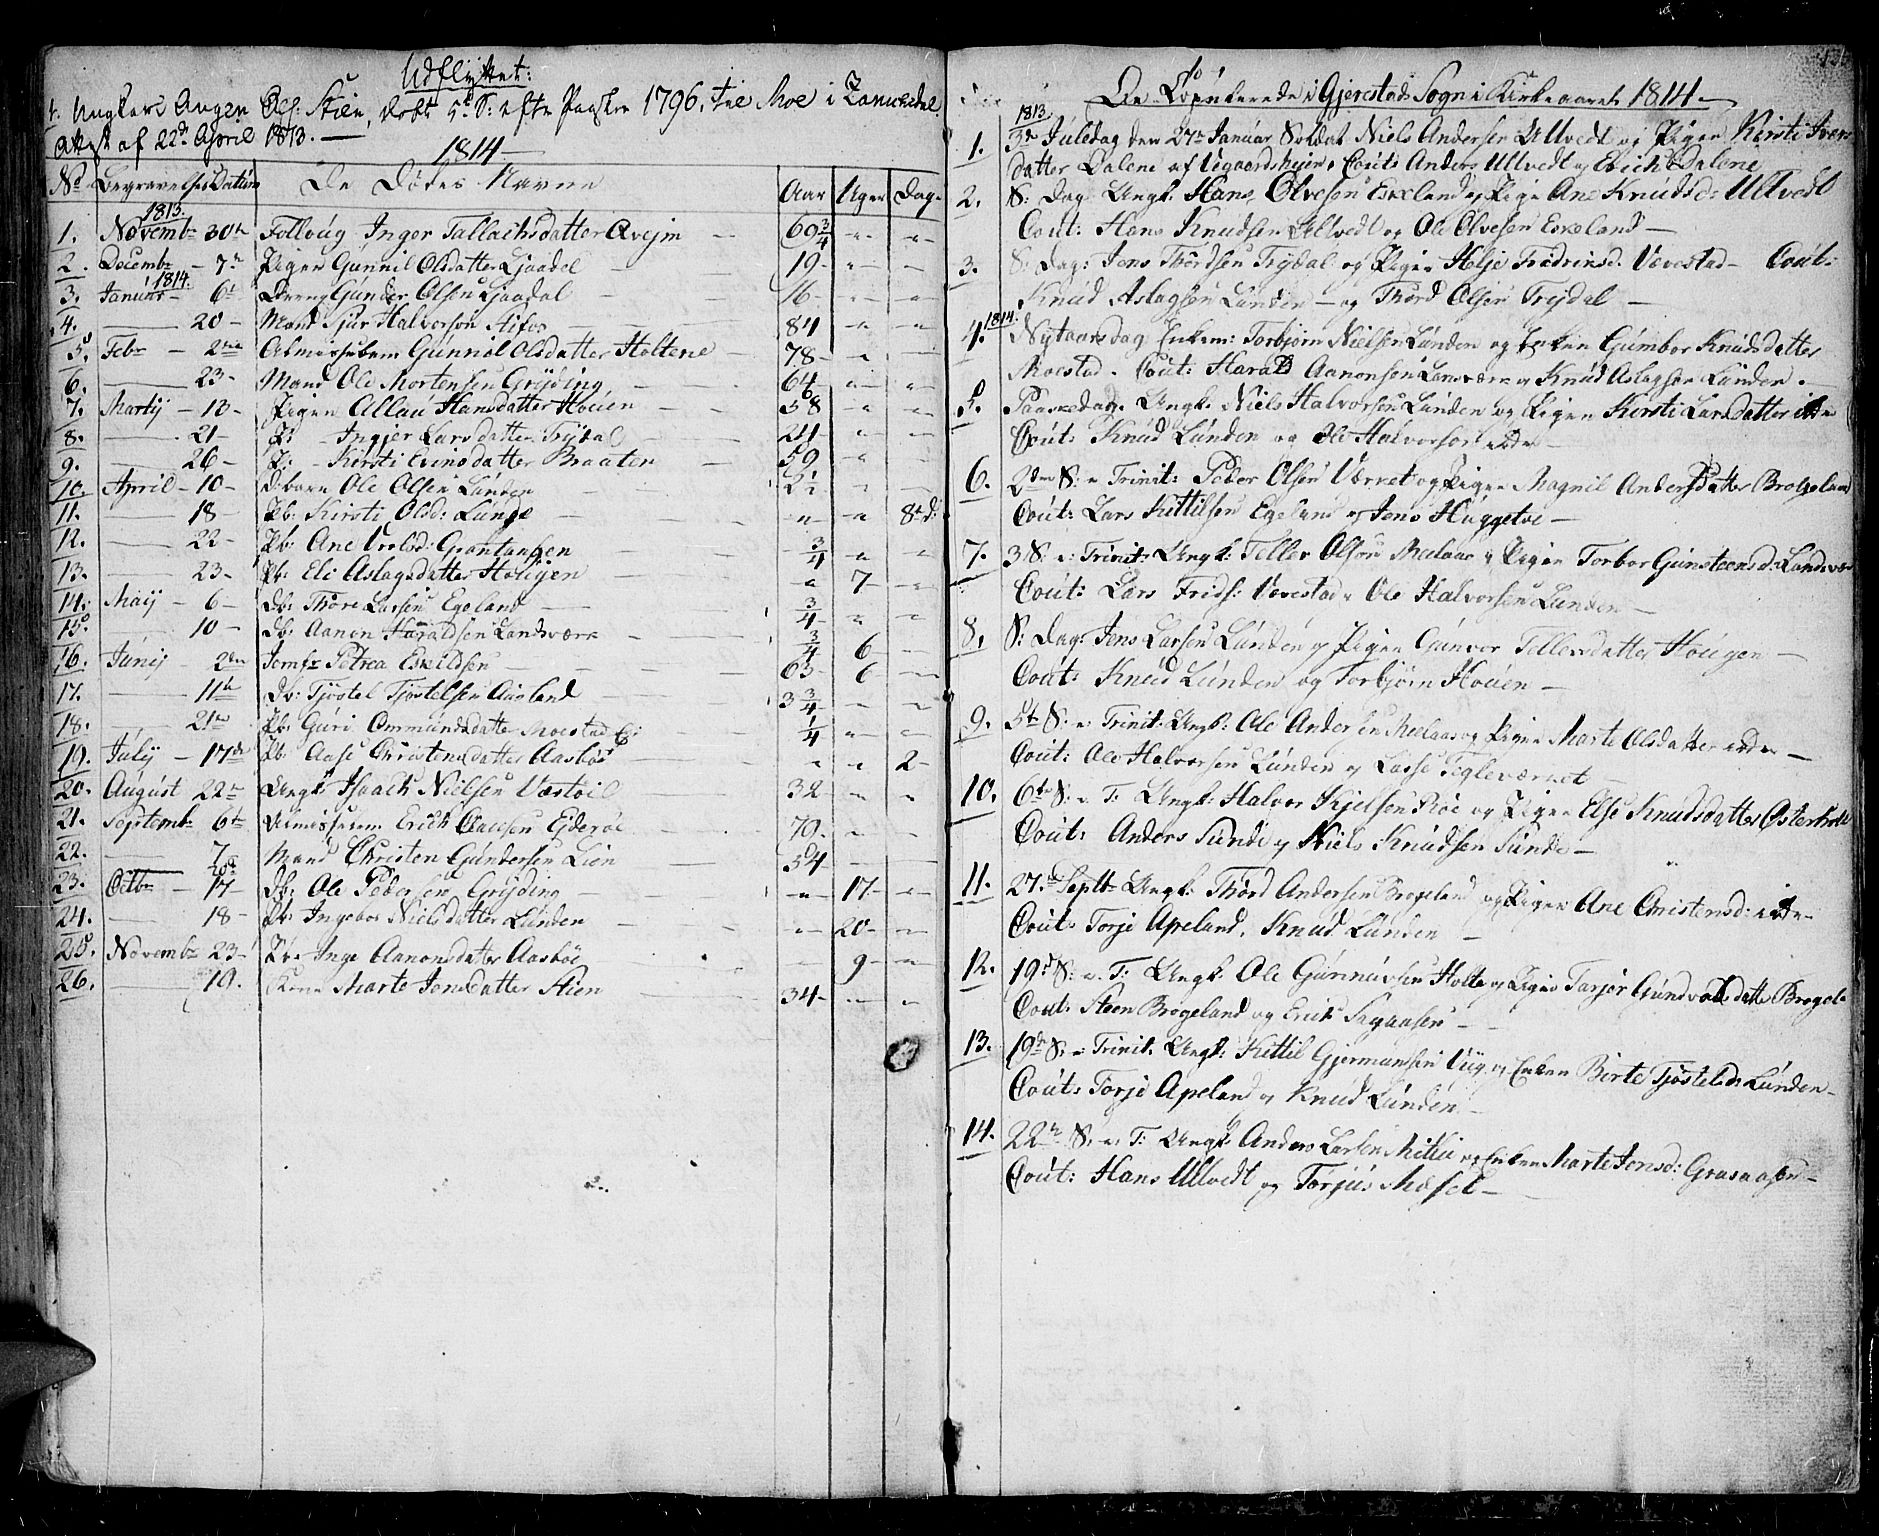 Udflyttet:
1. Ungkarl Aagen Ols: Stien, døbt 5te S: efter Paaske 1796, til Moe i Zanichdal
Attest af 22de April 1813.
1814
No Begravelses Datum De Dødes Navne Aar Uger Dage
1813.
1. Novembr 30te Folloug Inger Tallachsdatter Qvejm 69 3/4 " "
2. Decembr 7de Pigen Gunnil Olsdatter Ljaadal 19 " "
1814.
3. Januar 6te Dreng Gunder Olsen Ljaadal 16 " "
4. 20 Mand Sjur Halvorson 84 " "
5. Febr 2den Almisselem Gunnil Olsdatter Holtene 78 " "
6. 23 Mand Ole Mortensen Gryding 64 " "
7. Martij 13 Pigen Allau Hansdatter Houen 58 " "
8. 21 P: Ingjer Larsdatter Trydal 24 " "
9. 26 P: Kirsti Evensdatter Braaten 59 " "
10. April 10 D:barn Ole Olsen Lunden 2 1/2 " "
11. 18 Pb: Kirsti Olsd: Lunde " " 8te d:
12. 22 Pb: Ane Grantangen 3/4 " "
13. 23 Pb: Eli Aslagsdatter Hougen " 7 "
14. Maij 6 Db: Thore Larsen Egeland 3/4 " "
15. 10 Db: Aanon Haraldsen Landsværk 3/4 6
16. Junij 2den Jomfr Petrea Eskildsen 63 6 "
17. 11te Db: Tjøstel Tjøstelsen Ausland 3 3/4 " "
18. 21de Pb: Guri Ommundsdatter Moestad 1/4 " "
19. Julij 17de Pb: Aase Christensdatter Aasbøe " " 2
20. August 22de Ungk: Isaach Nielsen Væstøel 32 " "
21. Septembr 6te Almisselem Erich Clausen Ejderøe 79 " "
22. 7 Mand Christen Gundersen Lien 54
23. Octbr 17 Db: Ole Pedersen Gryding " 17 "
24. 18 Pb: Ingebor Nielsdatter Lunden " 20 "
25. Novembr 23 Pb: Inge Aanonsdatter Aasbøe 9 "
26. 19. Kone Marte Jensdatter Stien 34 " "
De Copulerede i Gjerestad Sogn i Kirkeaaret 1814
1813.
1. 3de Juledag den 27de Januar Soldat Niels Andersen Ulltvedt og Pigen Kirsti Ivers
datter Dalene af Vegaardshejen, Cout: Anders Ulltvedt og Erich Dalene
2. S: Dag Ungk: Hans Olvesen Eskeland og Pige Ane Knudsd: Ulltvedt
Cout: Hans Knudsen Ulltvedt og Ole Olvesen Eskeland
3. S: Dag: Jens Thordsen Trydal og Pigen Helje Fredrinsd. Vevestad Cout:
Knud Aslagsen Lunden og Thord Olsen Trydal
1814.
4. Nytaarsdag Enkem: Torbjørn Nielsen Lunden og Enken Gumbor Knudsdatter
Moestad. Cout: Harald Aanonsen Lansværk og Knud Aslagsen Lunden.
5. Paaskedag. Ungk: Niels Halvorsen Lunden og Pigen Kirsti Larsdatter
Cout: Knud Lunden og Ole Halvorsen
6. 2den S: e: Trinit: Peder Olsen Værret og Pigen Magnil Andersdatter Brogeland
Cout: Lars Kittilsen Egeland og Jens Huggetve
7. 3 S: e: Trinit: Ungk: Tellev Olsen Melaas og Pigen Torbor Gunsteensd: Landsvær
Cout: Lars Freds: Vevestad, Ole Halvorsen Lunden
8. S: Dag: Jens Larsen Lunden og Pigen Gunvor Tellevsdatter Hougen
Cout: Knud Lunden og Torbjørn Houen
9. 5te S: e: Trinit: Ungk: Ole Andersen Melaas og Pigen Marte Olsdatter
Cout: Ole Halvorsen Lunden og Lasse Tegleværket
10. 6te S: e: T: Ungk: Halvor Kjelsen Røe og Pigen Else Knudsdatter Østerholt
Cout: Anders Sunde og Niels Knudsen Sunde
11. 27de Septbr Ungk: Thord Andersen Brogeland og Pigen Ane Christensd:
Cout: Torje Apeland, Knud Lunden
12. 19de S: e: T: Ungk: Ole Gunnuvsen Holte og Pigen Tarjer Gundvoldsdatter Brogel
Cout: Steen Brogeland og Erik
13. 19de S: e: Trinit: Ungk: Kittil Gjermunsen Viig og Enken Birte Tjøstelsd: Lunden
Cout: Torje Apeland og Knud Lunden
14. 22de S: e: T: Ungk: Anders Larsen Mitlie og Enken Marte Jensd: Grasaasen
Cout: Hans Ulltvedt og Torjus Møsel